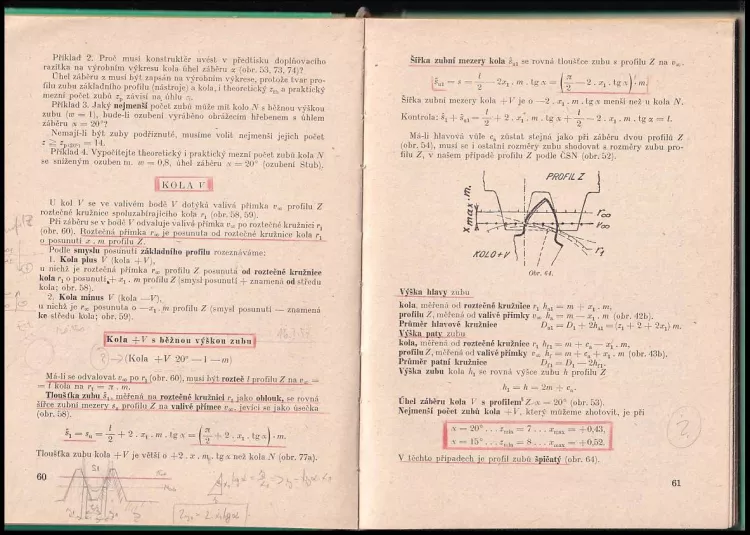 Příklad 2. Proč musí konstruktér uvést v předtisku doplňovacího
razítka na výrobním výkresu kola úhel záběru α (obr. 53, 73, 74)?
Úhel záběru α musí být zapsán na výrobním výkrese, protože tvar pro-
filu zubu základního profilu (nástroje) a kola, i theoretický zm a praktický
mezní počet zubů zp závisí na úhlu α.
Příklad 3. Jaký nejmenší počet zubů může mít kolo N s běžnou výškou
zubu (w = 1), bude-li ozubení vyráběno obrážecím hřebenem s úhlem
záběru α = 20°?
Nemají-li být zuby podříznuté, musíme volit nejmenší jejich počet
z ≧ = 14.
Příklad 4. Vypočítejte theoretický i praktický mezní počet zubů kola N
se sníženým ozubem m. w = 0,8, úhel záběru α = 20° (ozubení Stub).
KOLA V
U kol V se ve valivém bodě V dotýká valivá přímka v∞ profilu Z
roztečné kružnice spoluzabírajícího kola r1 (obr. 58, 59).
Při záběru se v bodě V odvaluje valivá přímka v∞ po roztečné kružnici r1
(obr. 60). Roztečná přímka r∞ je posunuta od roztečné kružnice kola r1
o posunutí x . m profilu Z.
Podle smyslu posunutí základního profilu rozeznáváme:
1. Kola plus V (kola +V),
u nichž je roztečná přímka r∞ profilu Z posunutá od roztečné kružnice
kola r1 o posunutí +x1 . m profilu Z (smysl posunutí + znamená od středu
kola; obr. 58).
2. Kola minus V (kola —V),
u nichž je r∞ posunuta o —x1 . m profilu Z (smysl posunutí — znamená
ke středu kola; obr. 59).
Kola +V s běžnou výškou zubu
(Kola +V 20° — 1 — m)
Má-li se odvalovat v∞ po r1 (obr. 60), musí být rozteč t profilu Z na v∞ =
= t kola na r1 = π . m.
Tloušťka zubu ŝ1, měřená na roztečné kružnici r1 jako oblouk, se rovná
šířce zubní mezery su profilu Z na valivé přímce v∞, jevící se jako úsečka
(obr. 58).
ŝ1 = su = t/2 + 2 . x1 . m . tg α = (π/2 + 2 . x1 . tg α) . m.
Tloušťka zubu kola +V je větší o +2 . x . m . tg α než kola N (obr. 77a).
60
Šířka zubní mezery kola ŝu1 se rovná tloušťce zubu s profilu Z na v∞.
ŝu1 = s = t/2 — 2x1 . m . tg α = (π/2 — 2 . x1 . tg α) . m.
Šířka zubní mezery kola +V je o —2 . x1 . m . tg α menší než u kola N.
Kontrola: ŝ1 + ŝu1 = t/2 + 2 . x1 . m . tg α + t/2 — 2 . x1 . m . tg α = t.
Má-li hlavová vůle ca zůstat stejná jako při záběru dvou profilů Z
(obr. 54), musí se i ostatní rozměry zubu shodovat s rozměry zubu pro-
filu Z, v našem případě profilu Z podle ČSN (obr. 52).
PROFIL Z
x max . m.
r∞
v∞
KOLO+V
Obr. 64.
Výška hlavy zubu
kola, měřená od roztečné kružnice r1 ha1 = m + x1 . m,
profilu Z, měřená od valivé přímky v∞ = m — x1 . m (obr. 42b).
Průměr hlavové kružnice Da1 = D1 + 2ha1 = (z1 + 2 + 2x1) m.
Výška paty zubu
kola, měřená od roztečné kružnice r1 hf1 = m + ca — x1 . m,
profilu Z, měřená od valivé přímky v∞ hf = m + ca + x1 . m (obr. 43b).
Průměr patní kružnice Df1 = D1 — 2hf1.
Výška zubu kola h1 se rovná výšce zubu h profilu Z
h1 = h = 2m + ca.
Úhel záběru kola V s profilem Z α = 20° (obr. 53).
Nejmenší počet zubů kola +V, který můžeme zhotovit, je při
α = 20° . . . zmin = 7 . . . xmax = +0,43,
α = 15° . . . zmin = 8 . . . xmax = +0,52.
V těchto případech je profil zubů špičatý (obr. 64).
61